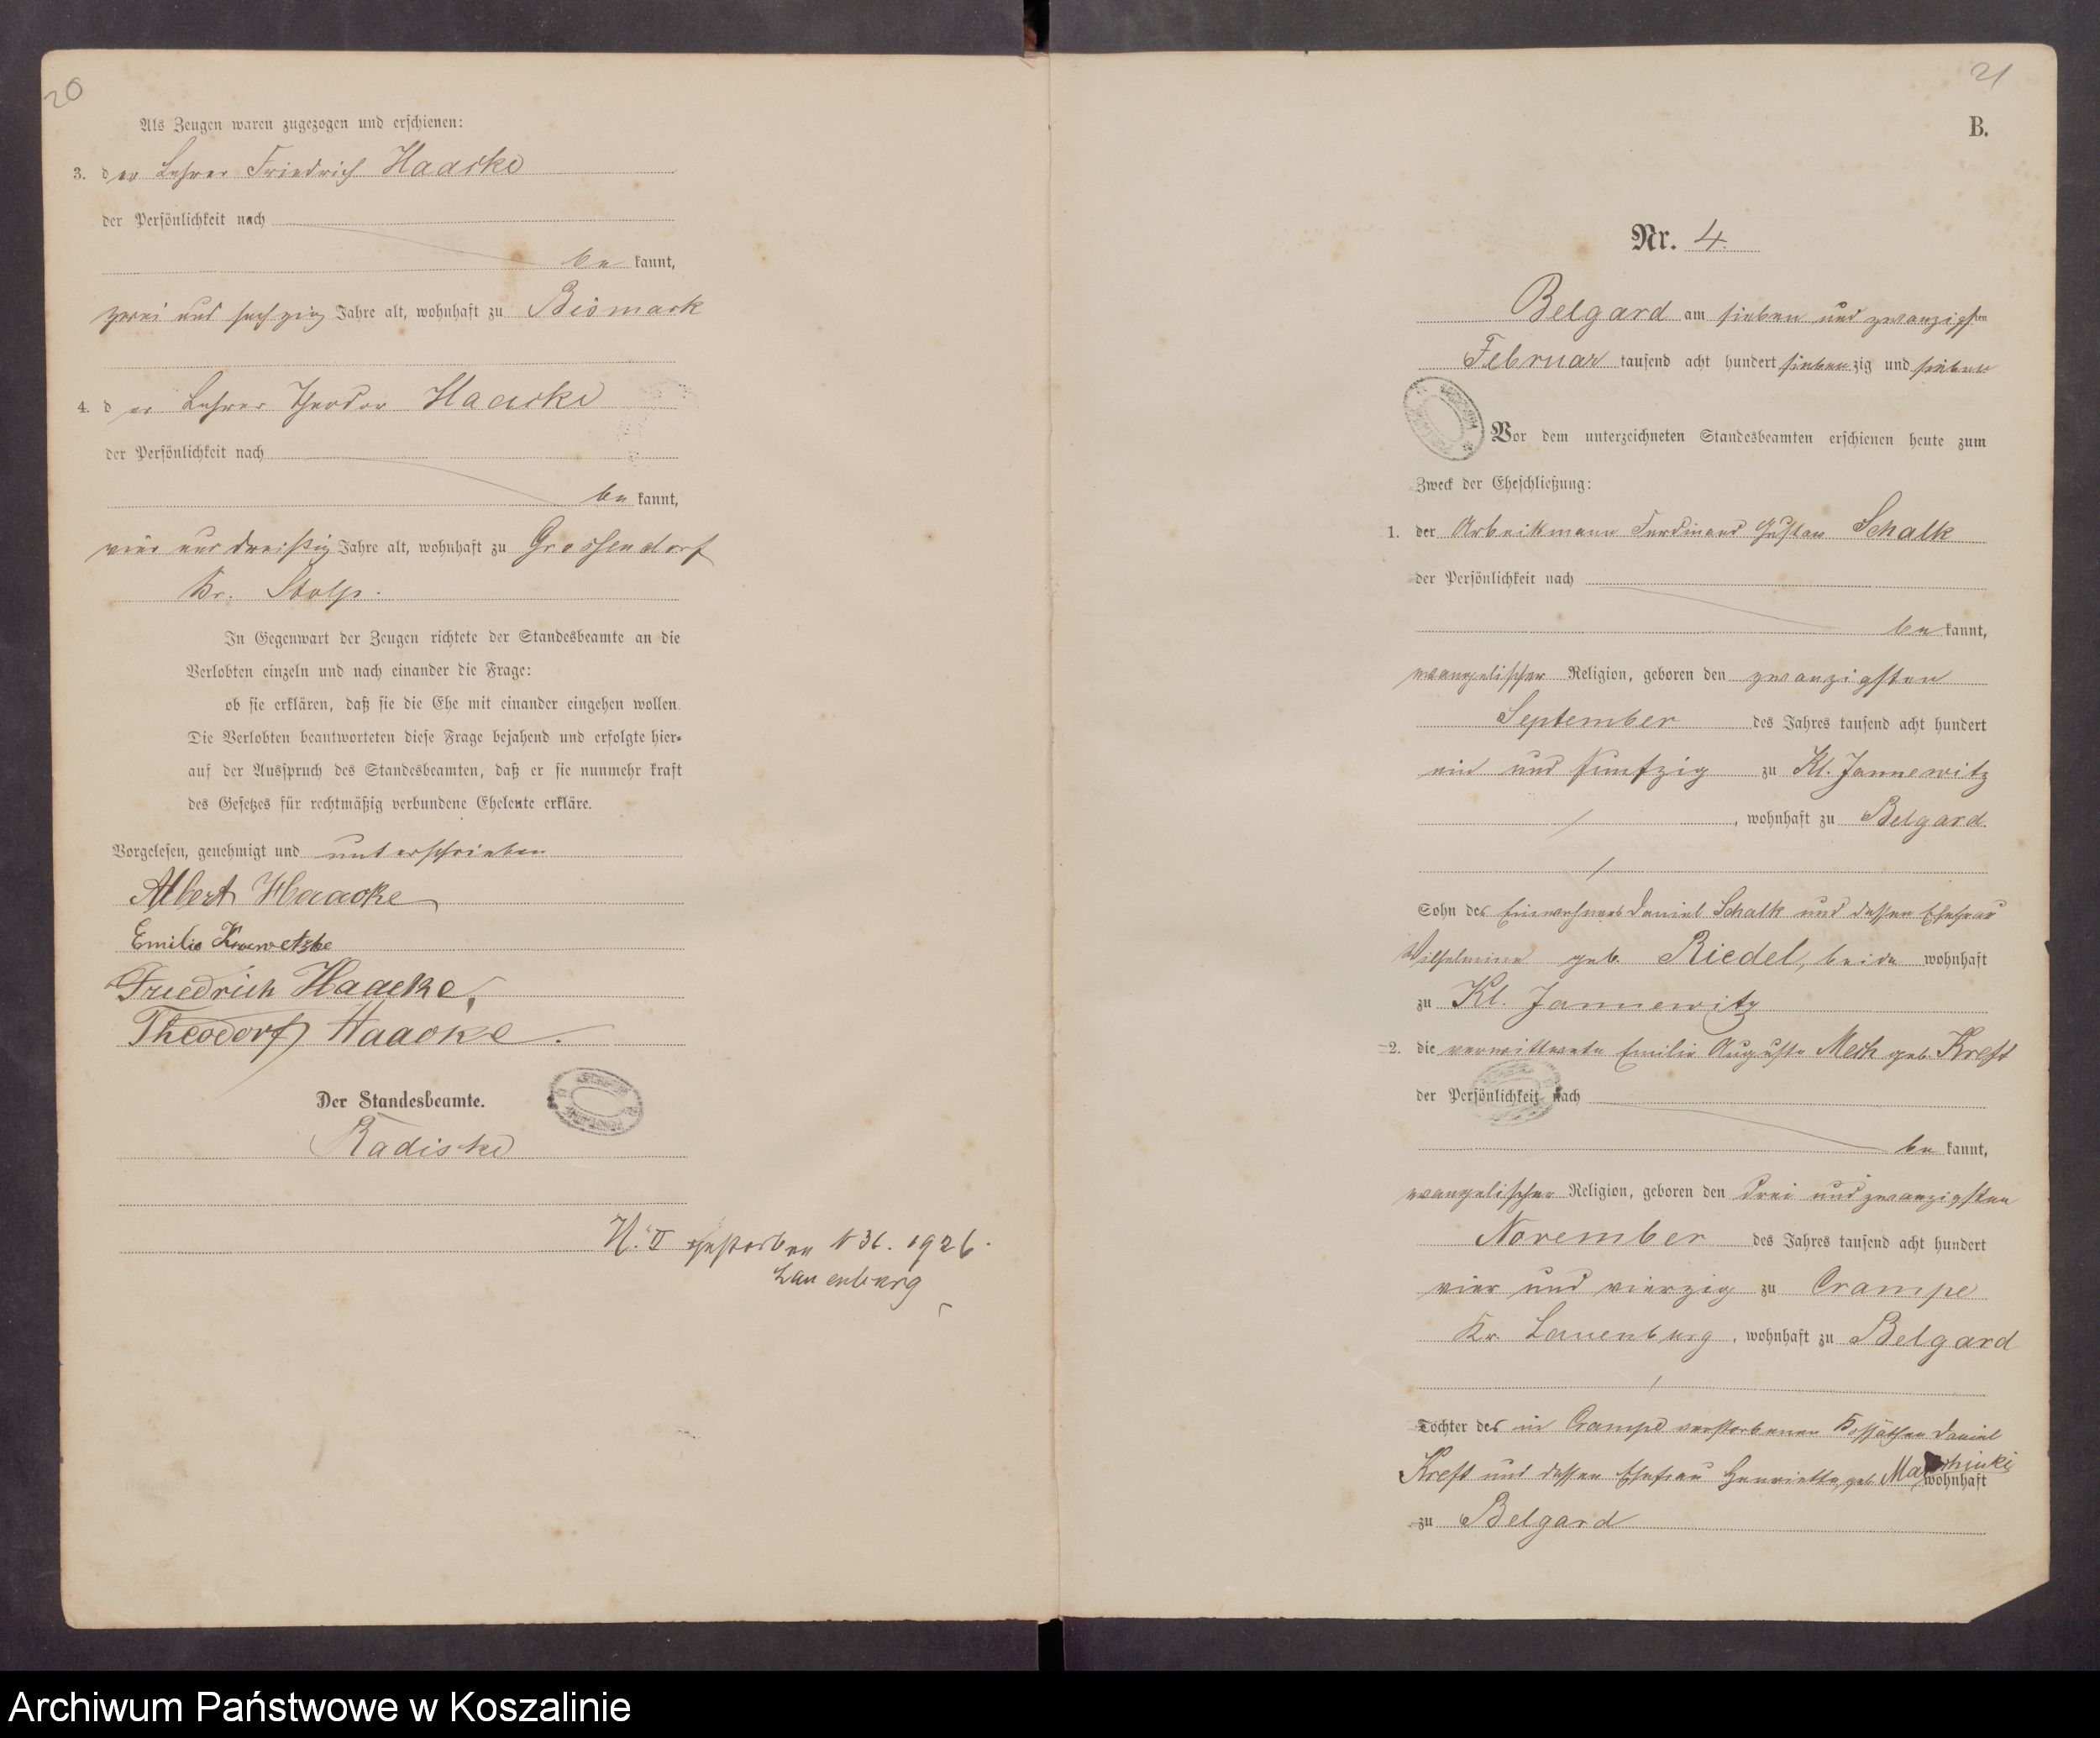 20
Als Zeugen waren zugezogen und erschienen:
3. der Lehrer Friedrich Haacke
der Persönlichkeit nach
bekannt,
zwei und sechzig Jahre alt, wohnhaft zu Bismark
4. der Lehrer Theodor Haacke
der Persönlichkeit nach
bekannt,
vier und dreißig Jahre alt, wohnhaft zu Grossendorf
Kr. Stolp.
In Gegenwart der Zeugen richtete der Standesbeamte an die
Verlobten einzeln und nach einander die Frage:
ob sie erklären, daß sie die Ehe mit einander eingehen wollen.
Die Verlobten beantworteten diese Frage bejahend und erfolgte hier-
auf der Ausspruch des Standesbeamten, daß er sie nunmehr kraft
des Gesetzes für rechtmäßig verbundene Eheleute erkläre.
Vorgelesen, genehmigt und unterschrieben
Albert Haacke
Emilie
Friedrich Haacke,
Theodor Haacke.
Der Standesbeamte.
Radiske
N. II gestorben 1926.
Lauenburg
21
B.
Nr. 4.
Belgard am sieben und zwanzigsten
Februar tausend acht hundert siebenzig und sieben
Vor dem unterzeichneten Standesbeamten erschienen heute zum
Zweck der Eheschließung:
1. der Arbeitsmann Ferdinand Gustav Schalk
der Persönlichkeit nach
bekannt,
evangelischer Religion, geboren den zwanzigsten
September des Jahres tausend acht hundert
ein und funfzig zu Kl. Jannewitz
, wohnhaft zu Belgard.
Sohn des Einwohners Daniel Schalk und dessen Ehefrau
Wilhelmine geb. Riedel, beide wohnhaft
zu Kl. Jannewitz
2. die verwittwete Emilie Auguste Mech geb. Kreft
der Persönlichkeit nach
bekannt,
evangelischer Religion, geboren den drei und zwanzigsten
November des Jahres tausend acht hundert
vier und vierzig zu Crampe
Kr. Lauenburg, wohnhaft zu Belgard
Tochter des in Crampe verstorbenen Kossäthen Daniel
Kreft und dessen Ehefrau Henriette, geb. wohnhaft
zu Belgard
Archiwum Państwowe w Koszalinie